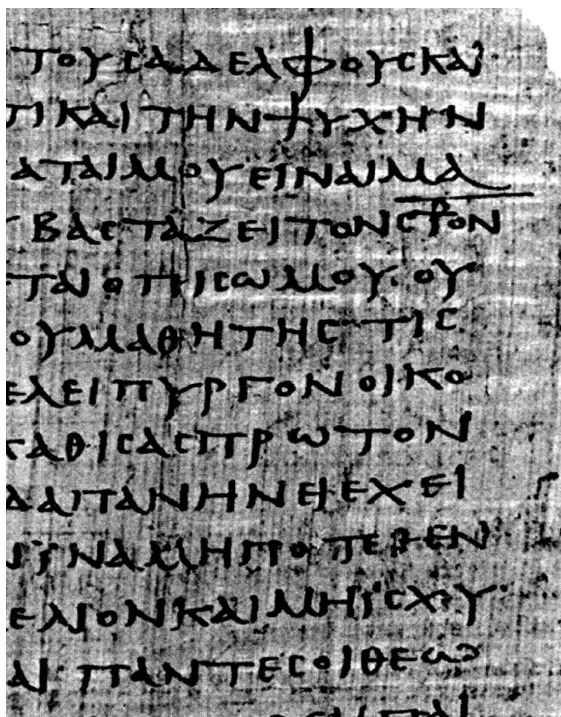 ΤΟΥϹΑΔΕΛΦΟΥϹΚΑΙ
ΤΙΚΑΙΤΗΝΨΥΧΗΝ
ΑΤΑΙΜΟΥΕΙΝΑΙΜΑ
ΒΑϹΤΑΖΕΙΤΟΝϹ⳨ΟΝ
ΤΑΙΟΠΙϹΩΜΟΥ ΟΥ
ΟΥΜΑΘΗΤΗϹ ΤΙϹ
ΕΛΕΙΠΥΡΓΟΝΟΙΚΟ
ΚΑΘΙϹΑϹΠΡΩΤΟΝ
ΔΑΠΑΝΗΝΕΙΕΧΕΙ
ΙΝΑΜΗΠΟΤΕΘΕΝ
ΕΛΙΟΝΚΑΙΜΗΙϹΧΥ
ΑΙ ΠΑΝΤΕϹΟΙΘΕΩ